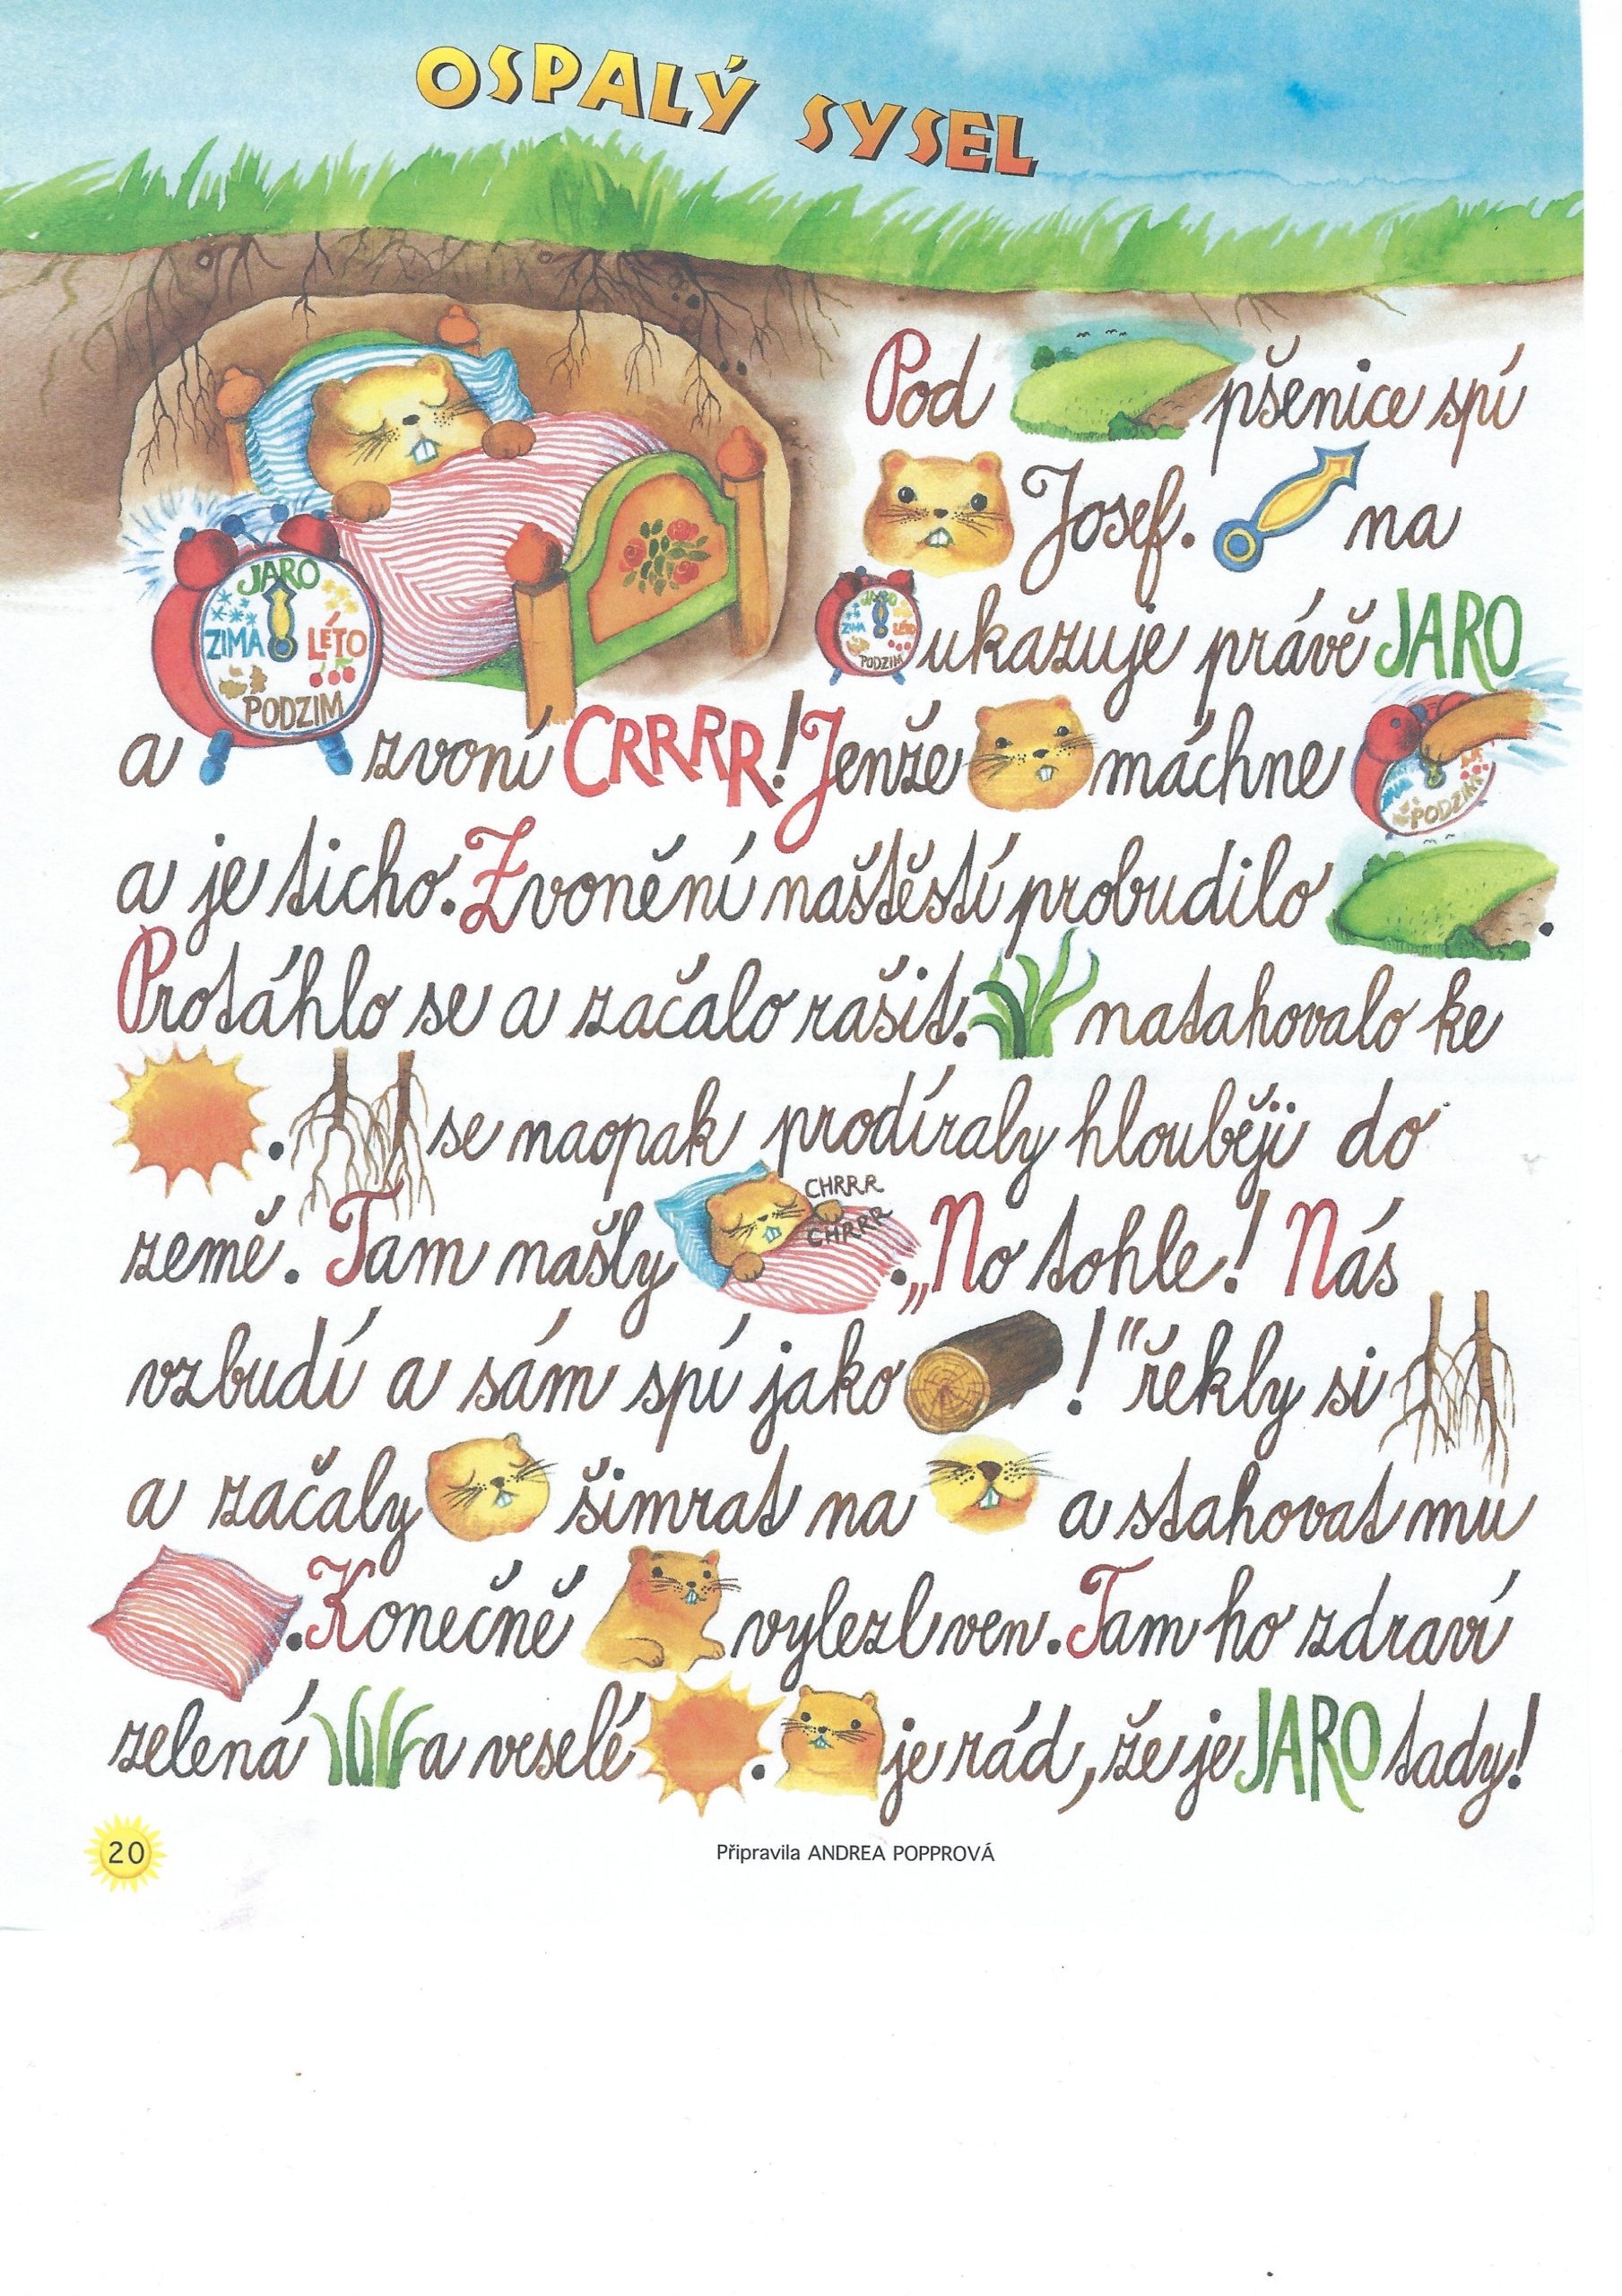 OSPALÝ SYSEL
Pod pšenice spí
Josef. na
ukazuje právě JARO
JARO
ZIMA LÉTO
PODZIM
JARO
ZIMA LÉTO
PODZIM
a zvoní CRRRR! Jenže máchne
PODZIM
a je ticho. Zvonění naštěstí probudilo .
Protáhlo se a začalo rašit. natahovalo ke
. se naopak prodíraly hlouběji do
země. Tam našly . „No tohle! Nás
CHRRR
CHRRR
vzbudí a sám spí jako !" řekly si
a začaly šimrat na a stahovat mu
. Konečně vylezl ven. Tam ho zdraví
zelená a veselé . je rád, že je JARO tady!
20
Připravila ANDREA POPPROVÁ